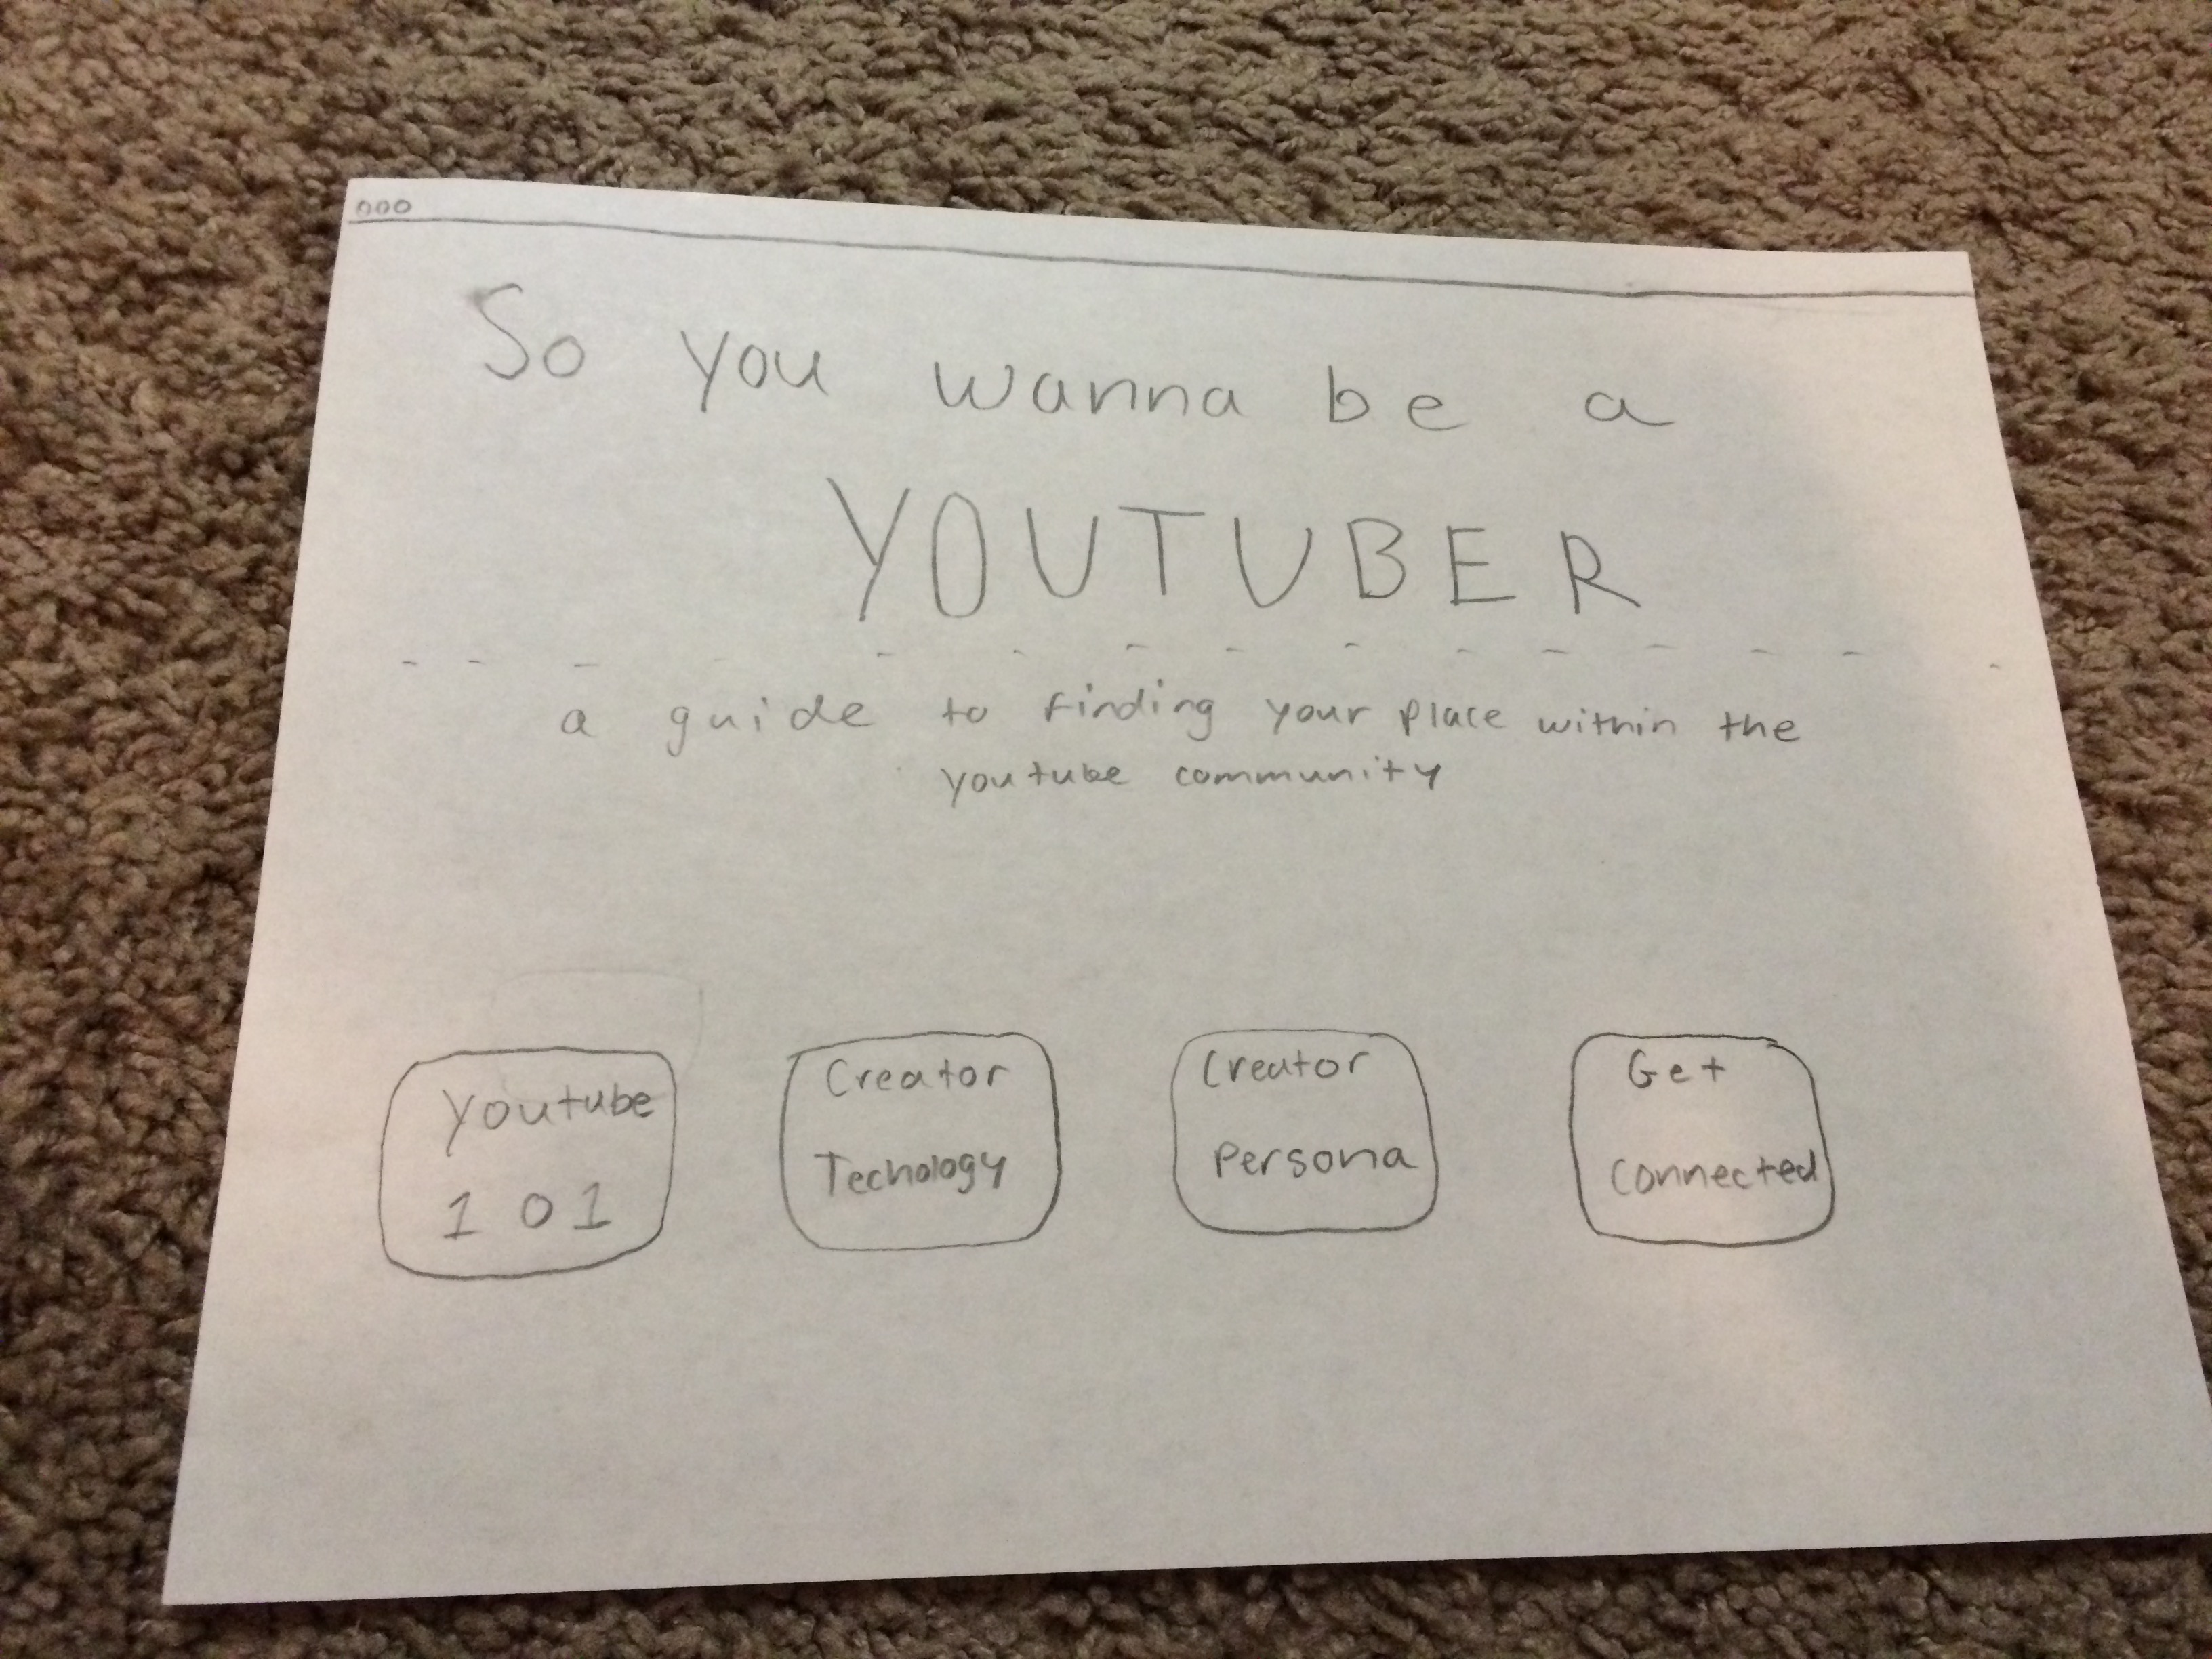 So you wanna be a
YOUTUBER
a guide to finding your place within the
youtube community
Youtube
101
Creator
Techology
Creator
Persona
Get
Connected